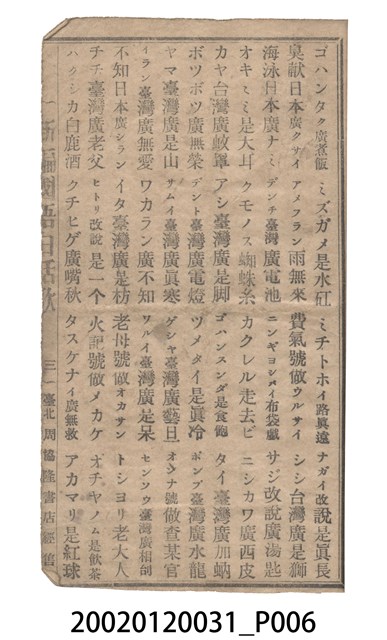 ゴハンタク廣煮飯 ミズガメ是水缸 ミチトホイ路真遠 ナガイ改說是真長
臭獻日本廣クサイ アメフラン雨無來 費氣號做ウルサイ シシ台灣廣是獅
海泳日本廣ナミ デンチ臺灣廣電池 ニンギヨシバイ布袋戲 サジ改說廣湯匙
オキミミ是大耳 クモノス蜘蛛糸 カクレル走去ビ ニシカワ廣西皮
カヤ台灣廣蚊罩 アシ臺灣廣是脚 ゴハンスンダ是食飽 タイ臺灣廣加蚋
ボツボツ廣無榮 デント臺灣廣電燈 ヅメタイ是真冷 ポンプ臺灣廣水龍
ヤマ臺灣廣是山 サムイ臺灣廣眞寒 ゲシヤ臺灣廣藝旦 オンナ號做查某官
イラン臺灣廣無愛 ワカラン廣不知 ワルイ臺灣廣是呆 センソウ臺灣廣相刣
不知日本廣シラン イタ臺灣廣是枋 老母號做オカサン トシヨリ老大人
チチ臺灣廣老父 ヒトリ改說是一个 火記號做メカケ オチヤノム是飲茶
ハクシカ白鹿酒 クチヒゲ廣嘴秋 タスケナイ廣無救 アカマリ是紅球
新編國語白話歌 三 臺北 周協隆書店經售
20020120031_P006